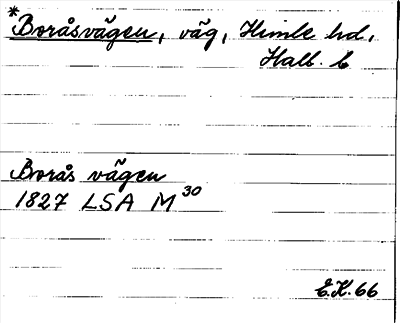 *Boråsvägen, väg, Himle hd,
Hall. l.
Borås vägen
1827 LSA M 30
E.K. 66